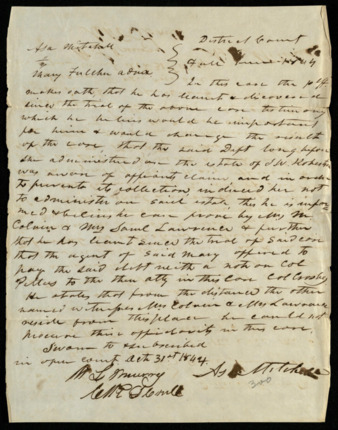 Asa Mitchell District Court
vs Fall 1844
Mary Fulcher admx In this case the plff
makes oath that he has learnt & discovered
since the trial of the above case testimony
which he believes would be important
for him & would change the result
of the case that the said Deft long before
she administered on the estate of
was aware of appeants claim and in order
to prevent its collection induced her not
to administer on said estate, this he is infor
med & believes he can prove by Mrs M
& Mrs Saml Lawrence & further
that he has learnt since the trial of said case
that the agent of said Mary offered to
pay the said debt with a note on Col
to the then atty in this case Col Crosby
He states that from the distance the other
named witnesses Mrs & Mrs Lawrence
reside from this place he could not
procure their affidavits in this case.
Sworn to & subscribed
in open court Octr 31st 1844
Asa Mitchell